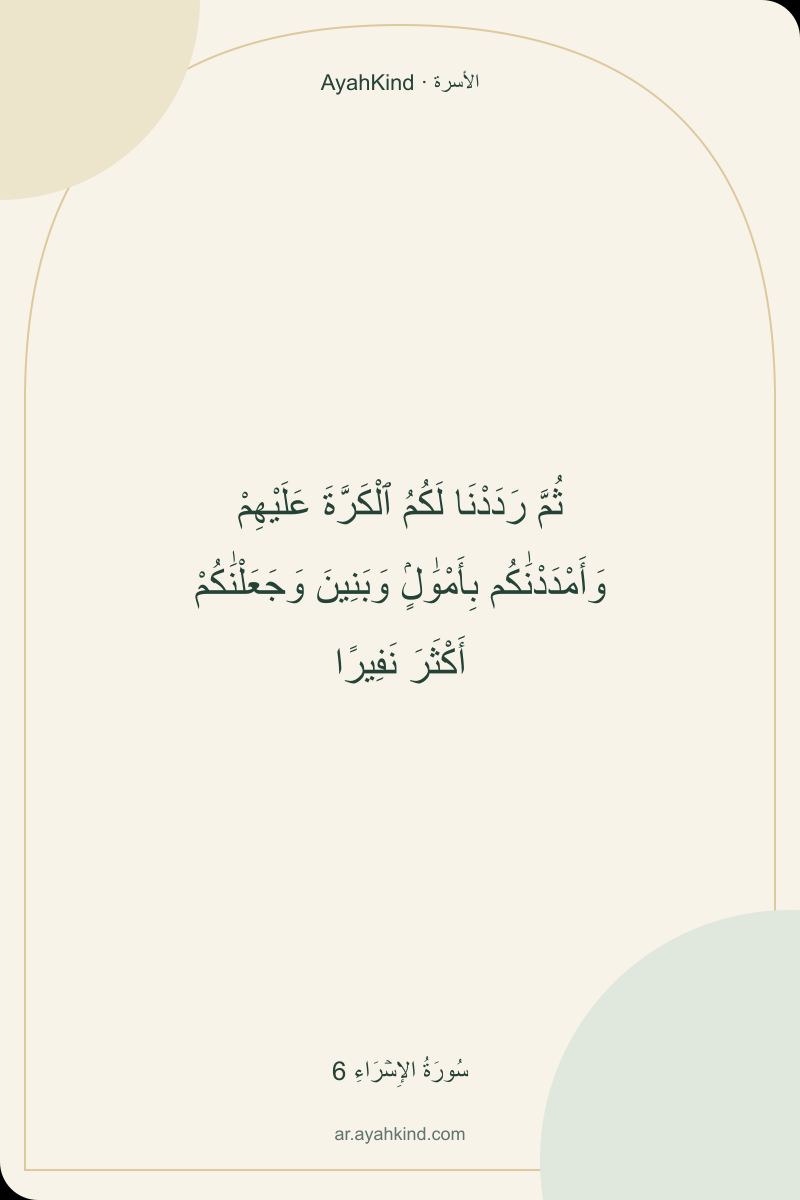 AyahKind · الأسرة
ثُمَّ رَدَدْنَا لَكُمُ ٱلْكَرَّةَ عَلَيْهِمْ
وَأَمْدَدْنَٰكُم بِأَمْوَٰلٍۢ وَبَنِينَ وَجَعَلْنَٰكُمْ
أَكْثَرَ نَفِيرًا
سُورَةُ الإِسۡرَاءِ 6
ar.ayahkind.com